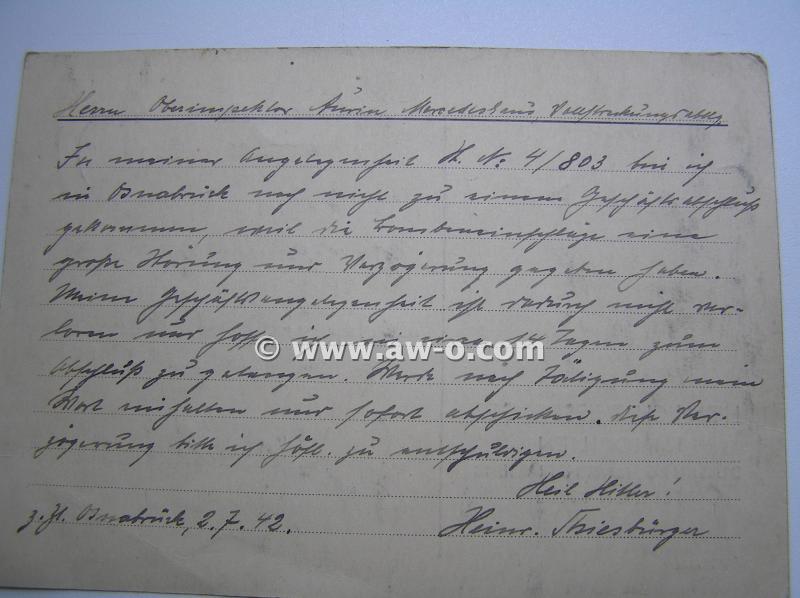 Herrn Oberinspektor Aurin Mercedeshaus, Vollstreckungsabtlg.
In meiner Angelegenheit H. No 4/803 bin ich
in Osnabrück noch nicht zu einem Geschäftsabschluß
gekommen, weil die Bombeneinschläge eine
große Störung und Verzögerung gegeben haben.
Meine Geschäftsangelegenheit ist dadurch nicht ver-
loren und hoffe ich 14 Tagen zum
Abschluß zu gelangen. Werde nach Tätigung mein
Wort einhalten und sofort abschicken. Diese Ver-
zögerung bitte ich höfl. zu entschuldigen.
Heil Hitler!
z. Zt. Osnabrück, 2.7.42.
Heinr. Thiesbürger
© www.aw-o.com